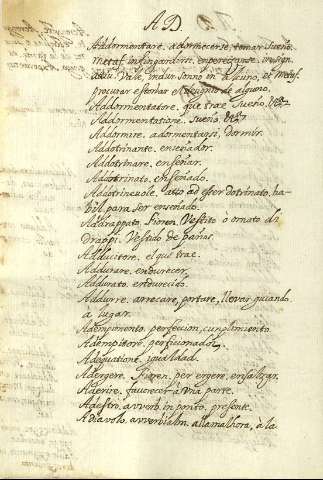 AD.
Addormentare, adormecerse, tomar sueño,
metaf. infingardirsi, enperezarse, in sign.
attiu. Vale, indur sonno in alcuno, et metaf.
procurar estomar el alguno.
Addormentatore, que trae sueño.
Addormentatione. sueño
Addormire. adormentarsi, dormir.
Addotrinante. enseñador.
Addotrinare. enseñar.
Addotrinato. enseñado.
Addotrineuole. atto ad esser dotrinato, ha-
bil para ser enseñado.
Addrappato. Fioren. Vestito o ornato di
Drappi. Vestido de paños.
Adducitore. el que trae.
Addurare. endurecer.
Addurato. endurecido.
Addurre. arrecare, portare, llevar guiando
a lugar.
Adempimento. perfecion, cumplimiento
Adempitore. perficionador.
Adequatione. igualdad.
Adergere. Fioren. per ergere, ensalzar.
Aderire. fauorecer à una parte.
Adestro. avverb. in ponto, presente.
Adiavolo. avverbialm. allamalhora, à la